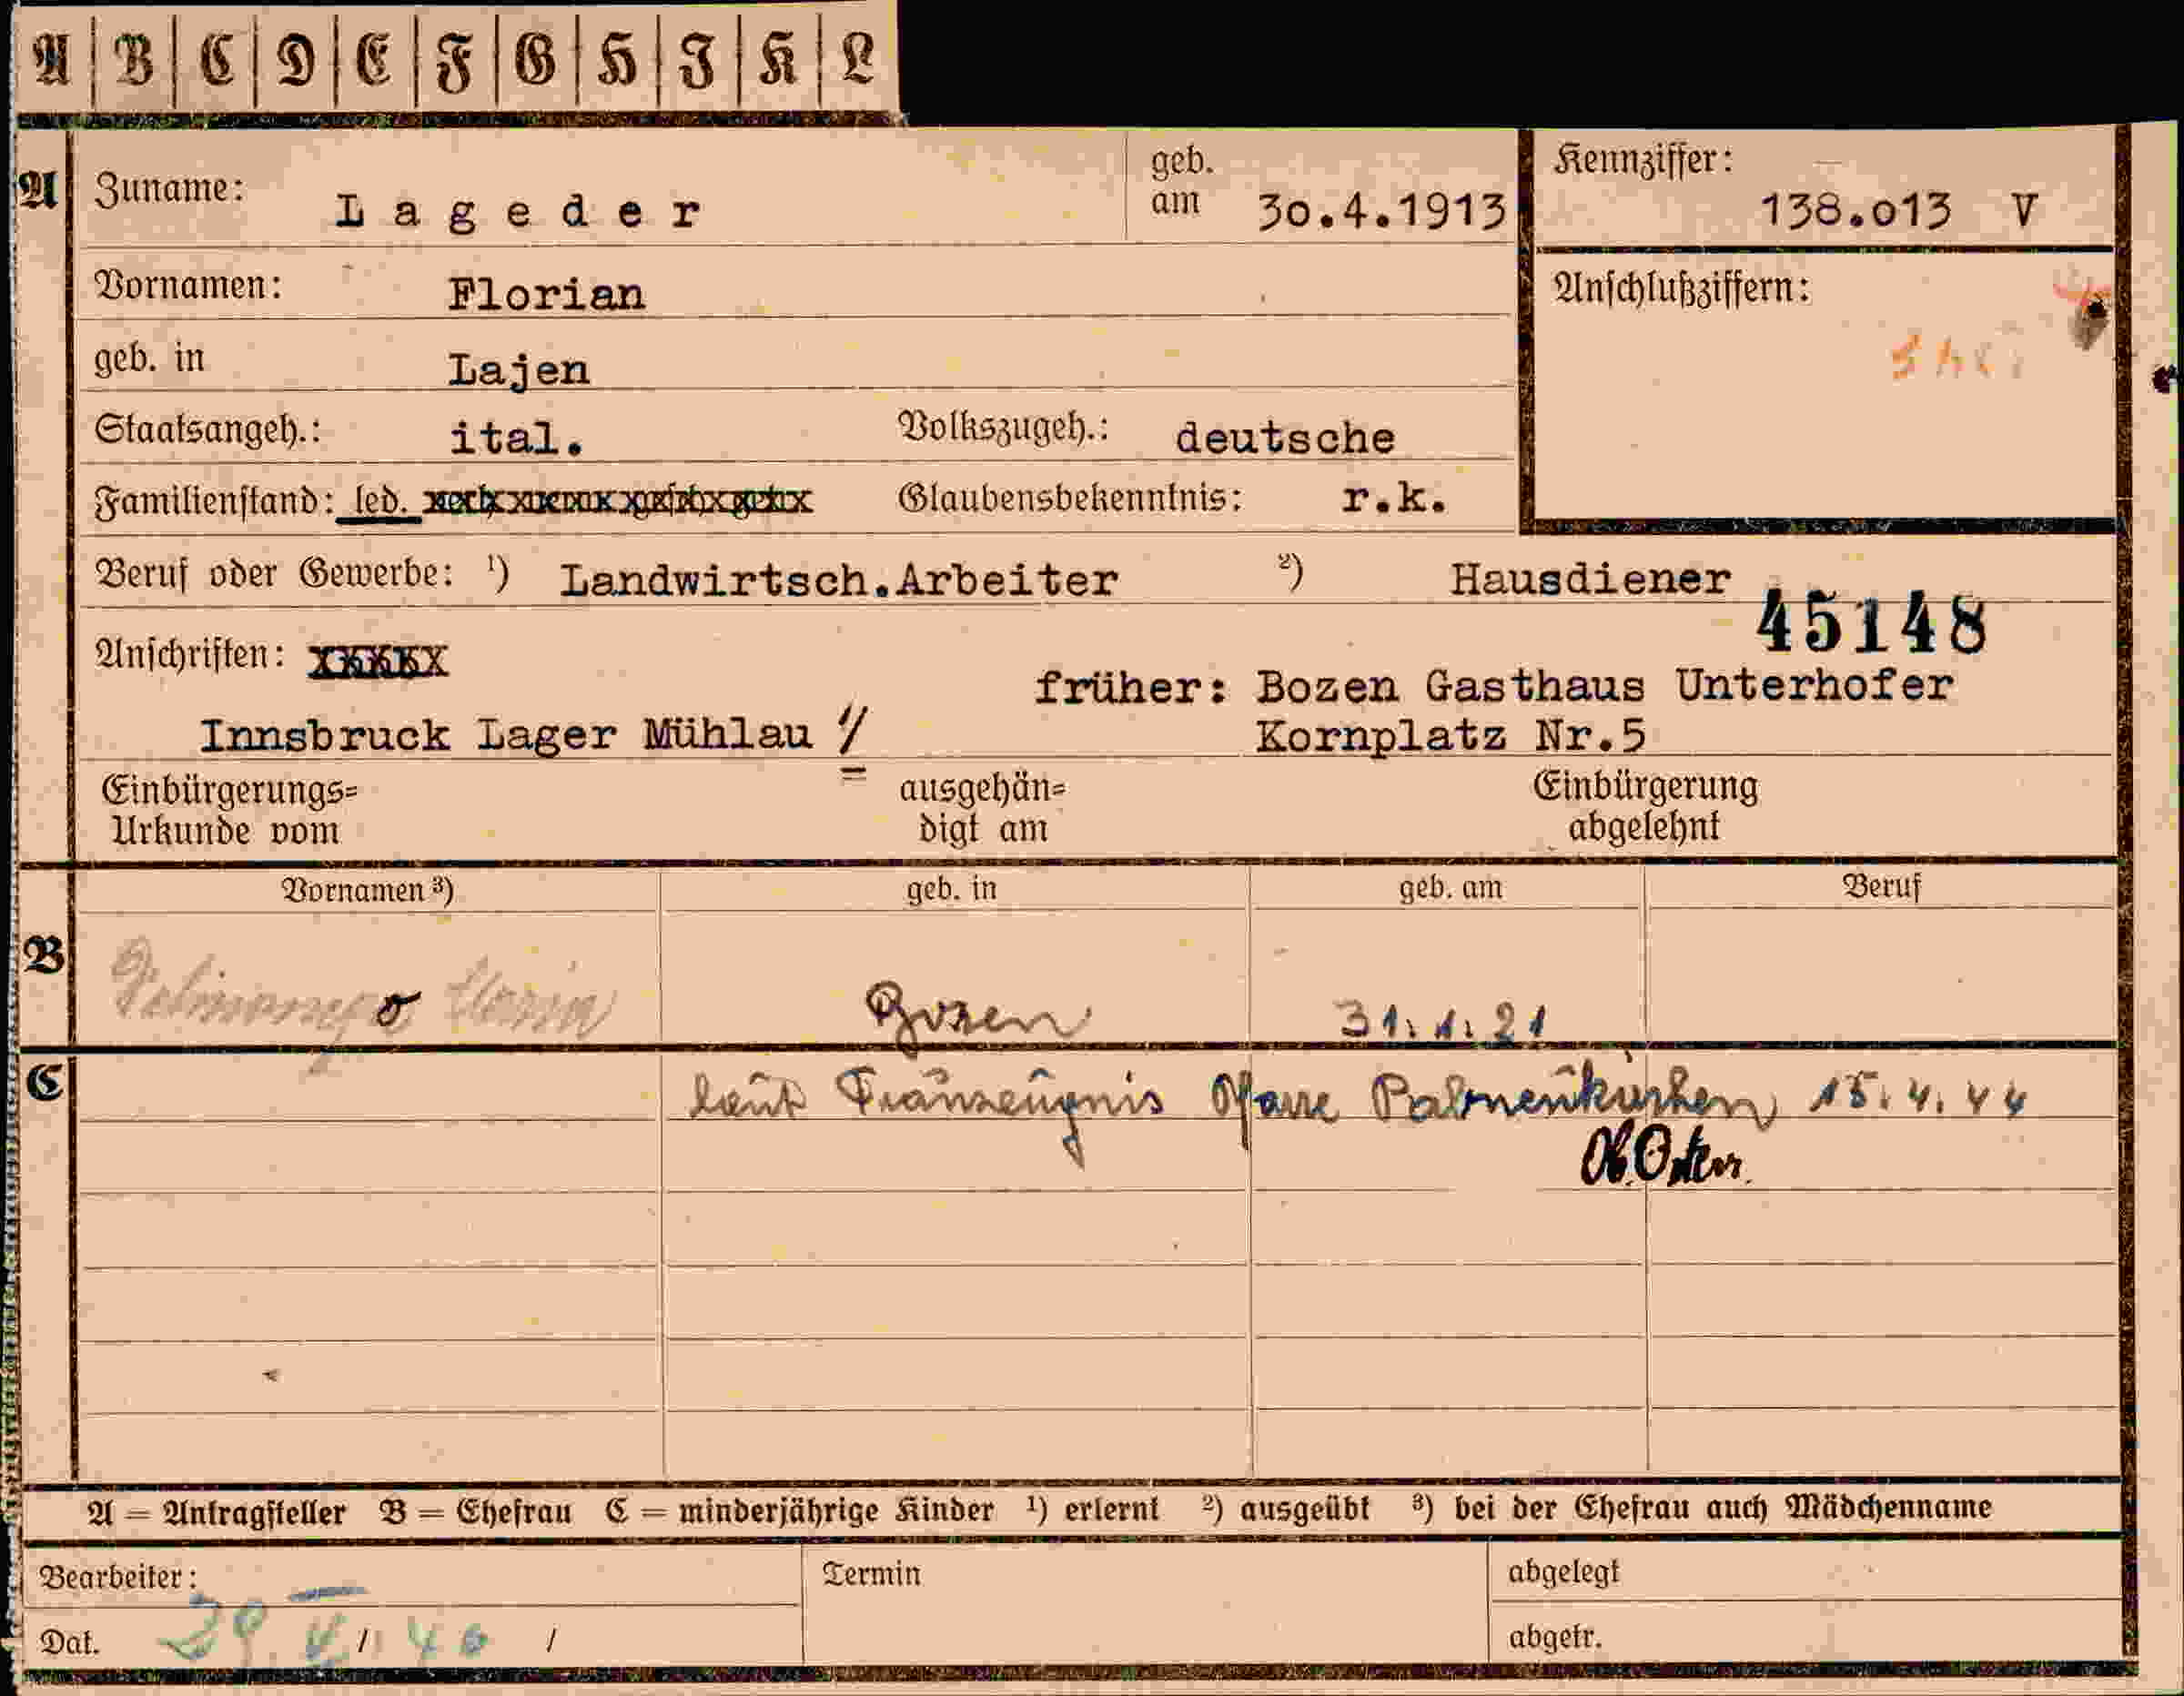 A B C D E F G H I K L
A Zuname: Lageder geb. am 30.4.1913 Kennziffer: 138.013 V
Vornamen: Florian Anschlußziffern:
geb. in Lajen
Staatsangeh.: ital. Volkszugeh.: deutsche
Familienstand: led. Glaubensbekenntnis: r.k.
Beruf oder Gewerbe: ¹) Landwirtsch.Arbeiter ²) Hausdiener
45148
Anschriften:
früher: Bozen Gasthaus Unterhofer
Innsbruck Lager Mühlau Kornplatz Nr.5
Einbürgerungs= ausgehän= Einbürgerung
Urkunde vom digt am abgelehnt
Vornamen ³) geb. in geb. am Beruf
B Maria Bozen 31.1.21
C laut Trauzeugnis Pfarre 15.4.44
A = Antragsteller B = Ehefrau C = minderjährige Kinder ¹) erlernt ²) ausgeübt ³) bei der Ehefrau auch Mädchenname
Bearbeiter: Termin abgelegt
Dat. 29. V / 40 / abgetr.